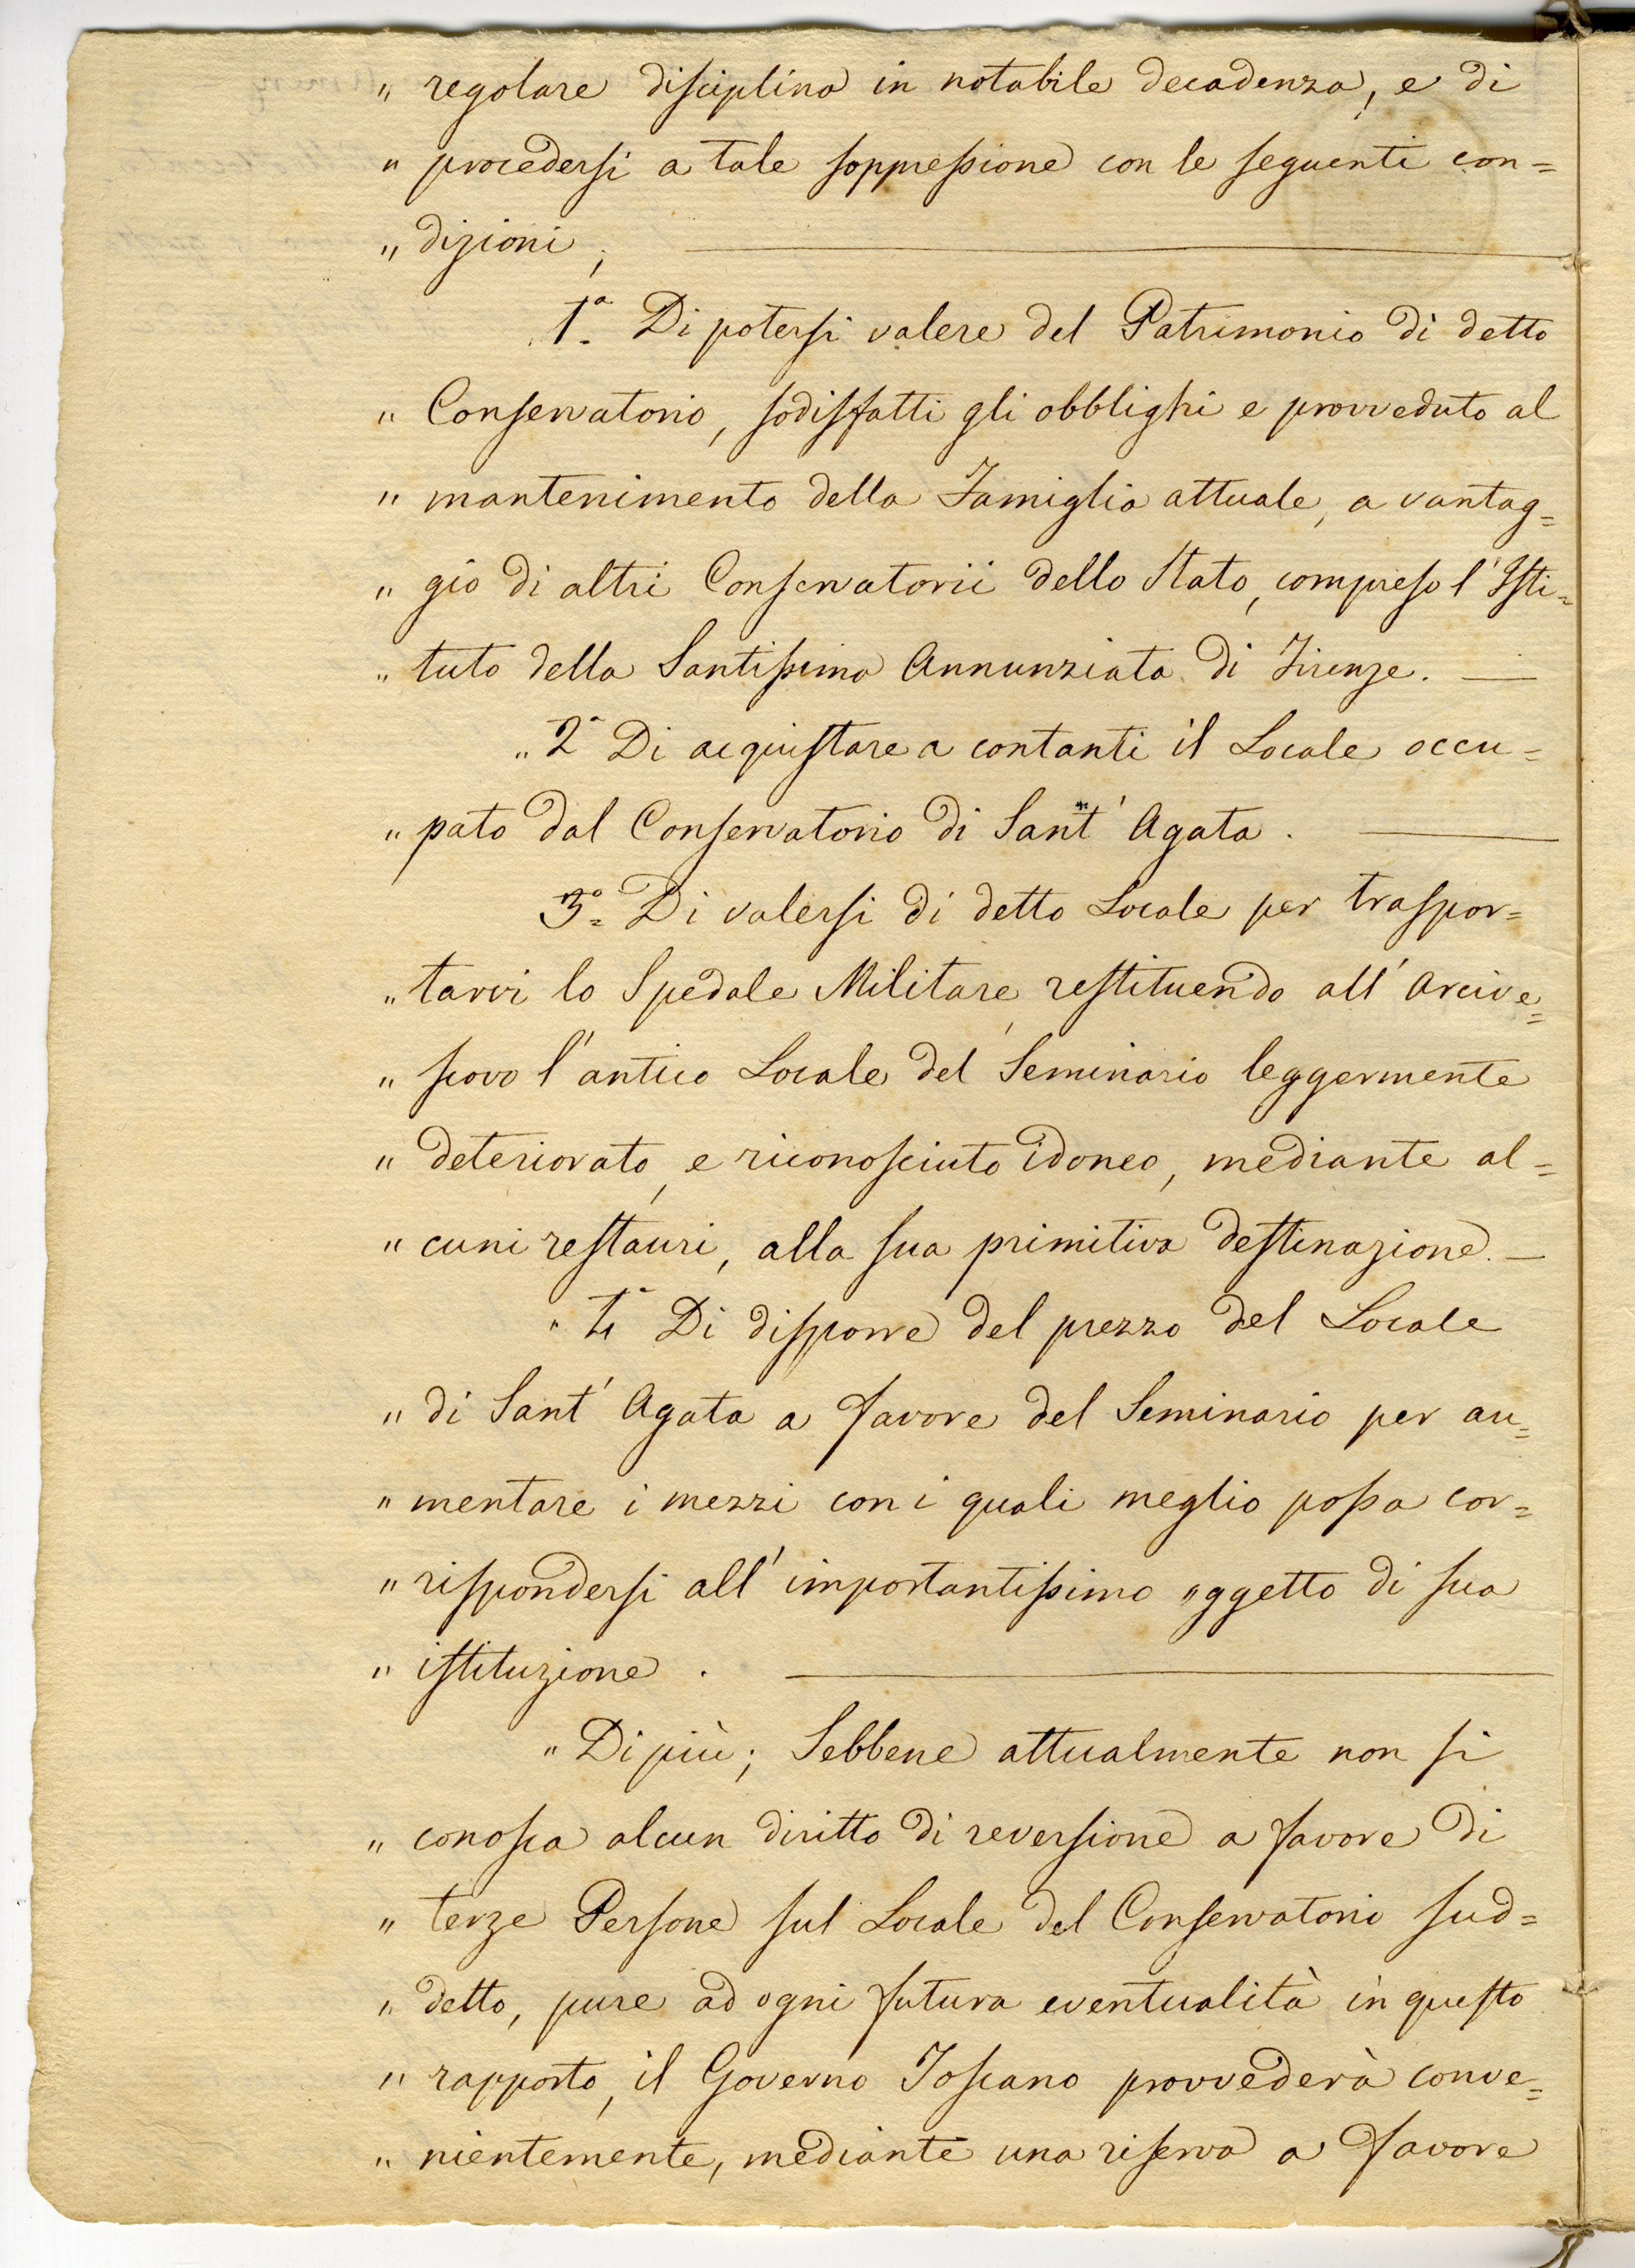 „ regolare disciplina in notabile decadenza, e di
„ procedersi a tale soppressione con le seguenti con=
„ dizioni;
1.ª Di potersi valere del Patrimonio di detto
„ Conservatorio, sodisfatti gli obblighi e provveduto al
„ mantenimento della Famiglia attuale, a vantag=
„ gio di altri Conservatorii dello Stato, compreso l'Isti=
„ tuto della Santissima Annunziata di Firenze.
„ 2ª Di acquistare a contanti il Locale occu=
„ pato dal Conservatorio di Sant' Agata.
3ª Di valersi di detto Locale per traspor=
„ tarvi lo Spedale Militare, restituendo all' Arcive=
„ scovo l'antico Locale del Seminario leggermente
„ deteriorato, e riconosciuto idoneo, mediante al=
„ cuni restauri, alla sua primitiva destinazione.
„ 4ª Di disporre del prezzo del Locale
„ di Sant' Agata a favore del Seminario per au=
„ mentare i mezzi con i quali meglio possa cor=
„ rispondersi all' importantissimo oggetto di sua
„ istituzione.
„ Di più; Sebbene attualmente non si
„ conosca alcun diritto di reversione a favore di
„ terze Persone sul Locale del Conservatorio sud=
„ detto, pure ad ogni futura eventualità in questo
„ rapporto, il Governo Toscano provvederà conve=
„ nientemente, mediante una riserva a favore